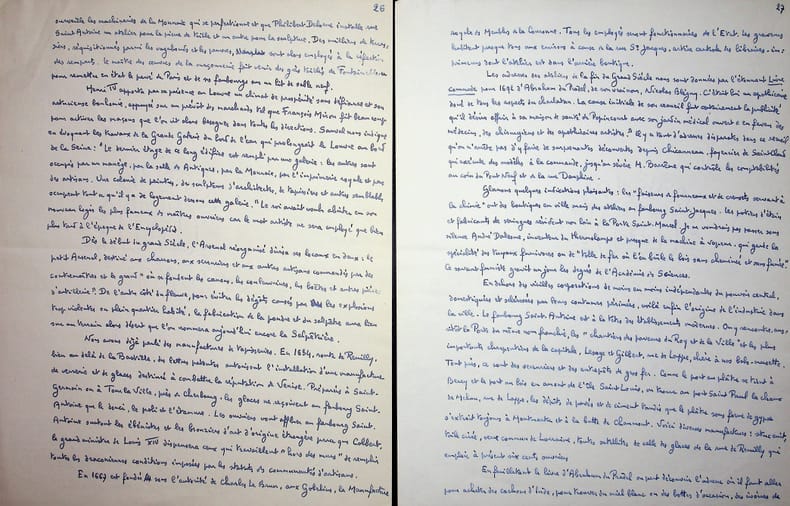 26
surveille les machineries de la Monnaie qui se perfectionne et que Philibert Delorme installe rue
Saint Antoine un atelier pour la pierre de taille et un autre pour la sculpture. Des milliers de
réquisitionnés parmi les vagabonds et les pauvres, sont alors employés à la réfection
des remparts. le maître des œuvres de la maçonnerie fait venir des grès taillés de Fontainebleau
pour remettre en état le pavé de Paris et de ses faubourgs sur un lit de sable neuf.
Henri IV apporte par sa présence au Louvre un climat de prospérité sans défiance et son
astucieuse bonhomie, appuyée sur un prévôt des marchands tel que François Miron fit beaucoup
pour activer les maisons que l'on vit alors besognes dans toutes les directions. Sauval nous indique
en évoquant les travaux de la Grande Galerie du bord de l'eau qui prolongeait le Louvre au bord
de la Seine : "Le dernier étage de ce long édifice est rempli par une galerie : les autres sont
occupés par un manège, par la salle des Antiques, par la Monnaie, par l'imprimerie royale et par
des artisans. Une colonie de peintres, de sculpteurs d'architectes, de tapissiers et autres semblables
occupent tant qu'il y a de logement dessous cette galerie. "Le roi avait voulu abriter en son
nouveau logis les plus fameux des maîtres ouvriers car le mot artiste ne sera employé que bien
plus tard à l'époque de l'Encyclopédie.
Dès le début du grand Siècle, l'Arsenal réorganisé divisa ses locaux en deux : le
petit Arsenal, destiné aux charrons, aux serruriers et aux autres artisans commandés par des
contremaîtres et le grand "où se fondent les canons, les couleuvrines, les boîtes et autres pièces
d'artillerie". De l'autre côté du fleuve, pour éviter les dégâts causés par les explosions
trop violentes en plein quartier habité, la fabrication de la poudre et du salpêtre aura lieu
sur un terrain alors désert que l'on nommera aujourd'hui encore la Salpêtrière.
Nous avons déjà parlé des manufactures de tapisseries. En 1634, route de Reuilly,
bien au delà de la Bastille, des lettres patentes autorisent l'installation d'une manufacture
de verrerie et de glaces destinée à combattre la réputation de Venise. Préparées à Saint-
Germain ou à Tour la Ville, près de Cherbourg : les glaces reçoivent au faubourg Saint
Antoine que le douci, le poli et l'étamure. Les ouvriers vont affluer au faubourg Saint
Antoine surtout les ébénistes et les bronziers d'art d'origine étrangère parce que Colbert,
le grand ministre de Louis XIV dispensera ceux qui travaillent "hors des murs" de remplir
toutes les draconiennes conditions imposées par les statuts des communautés d'artisans.
En 1667 est fondée sous l'autorité de Charles Le Brun, aux Gobelins, la Manufacture
27
royale des Meubles de la Couronne. Tous les employés seront fonctionnaires de l'Etat. Les graveurs
habitent presque tous une enceinte à cause de la rue St. Jacques, artère autrefois des libraires-im-
primeurs dont l'atelier est dans l'arrière boutique.
Les adresses des ateliers à la fin du Grand Siècle nous sont données par l'étonnant Livre
commode pour 1692 d'Abraham du Pradel, de son vrai nom, Nicolas Blégny. C'était lui un apothicaire
dont tous les aspects du charlatan. La cause initiale de son recueil fut certainement la publicité
qu'il désira offrir à sa maison de santé de Popincourt avec son jardin médical ouvert "en faveur des
médecins, des chirurgiens et des apothicaires artistes." Il y a tant d'adresses disparates dans ce recueil
qu'on n'arrête pas d'y faire de surprenantes découvertes depuis Chicanneau, fayencier de Saint Cloud
qui exécute des modèles à la commande, jusqu'au sieur M. Barrème qui contrôle les comptabilités
au coin du Pont Neuf et de la rue Dauphine.
Glanons quelques indications plaisantes : les "faiseurs de fourneaux et de creusets servant à
la chimie" ont des boutiques en ville mais des ateliers au faubourg Saint-Jacques. les potiers d'étain
et fabricants de seringues résident non loin de la Porte Saint-Marcel. Je ne voudrais pas passer sous
silence André Dalesme, inventeur du thermolampe et presque de la machine à vapeur, qui garde la
spécialité des tuyaux fumivores ou de "tôle de fer où l'on brûle le bois sans cheminée et sans fumée."
Ce savant fumiste gravit un jour les degrés de l'Académie des Sciences.
En dehors des vieilles corporations de moins en moins indépendantes du pouvoir central,
domestiquées et sclérosées par leurs coutumes périmées, voilà enfin l'origine de l'industrie dans
la ville. Le faubourg Saint Antoine est à la tête des établissements modernes. On y rencontre, ou
côté la Porte du même nom franchie, les "chantiers des parcours du Roy et de la Ville" et les plus
importants charpentiers de la capitale, Lesage et Gilbert, rue de Lappe, chère à nos bals-musette.
Tout près, ce sont des serruriers et des entrepôts de gros fer. Comme le port au plâtre se tient à
Bercy et le port au bois en amont de l'Ile Saint Louis, on trouve au port Saint Paul la chaux
de Melun, rue de Lappe, les dépôts de pavés et de ciment tandis que le plâtre sous forme de gypse
s'extrait toujours à Montmartre et à la butte de Chaumont. Voici diverses manufactures :
toile cirée, verre commun de Lorraine, toutes satellites de celle des glaces de la rue de Reuilly, qui
emploie à présent six cents ouvriers.
En feuilletant le livre d'Abraham du Pradel on peut découvrir l'adresse où il faut aller
pour acheter des cachous d'Inde, pour trouver du miel blanc ou des bottes d'occasion, des ivoires de